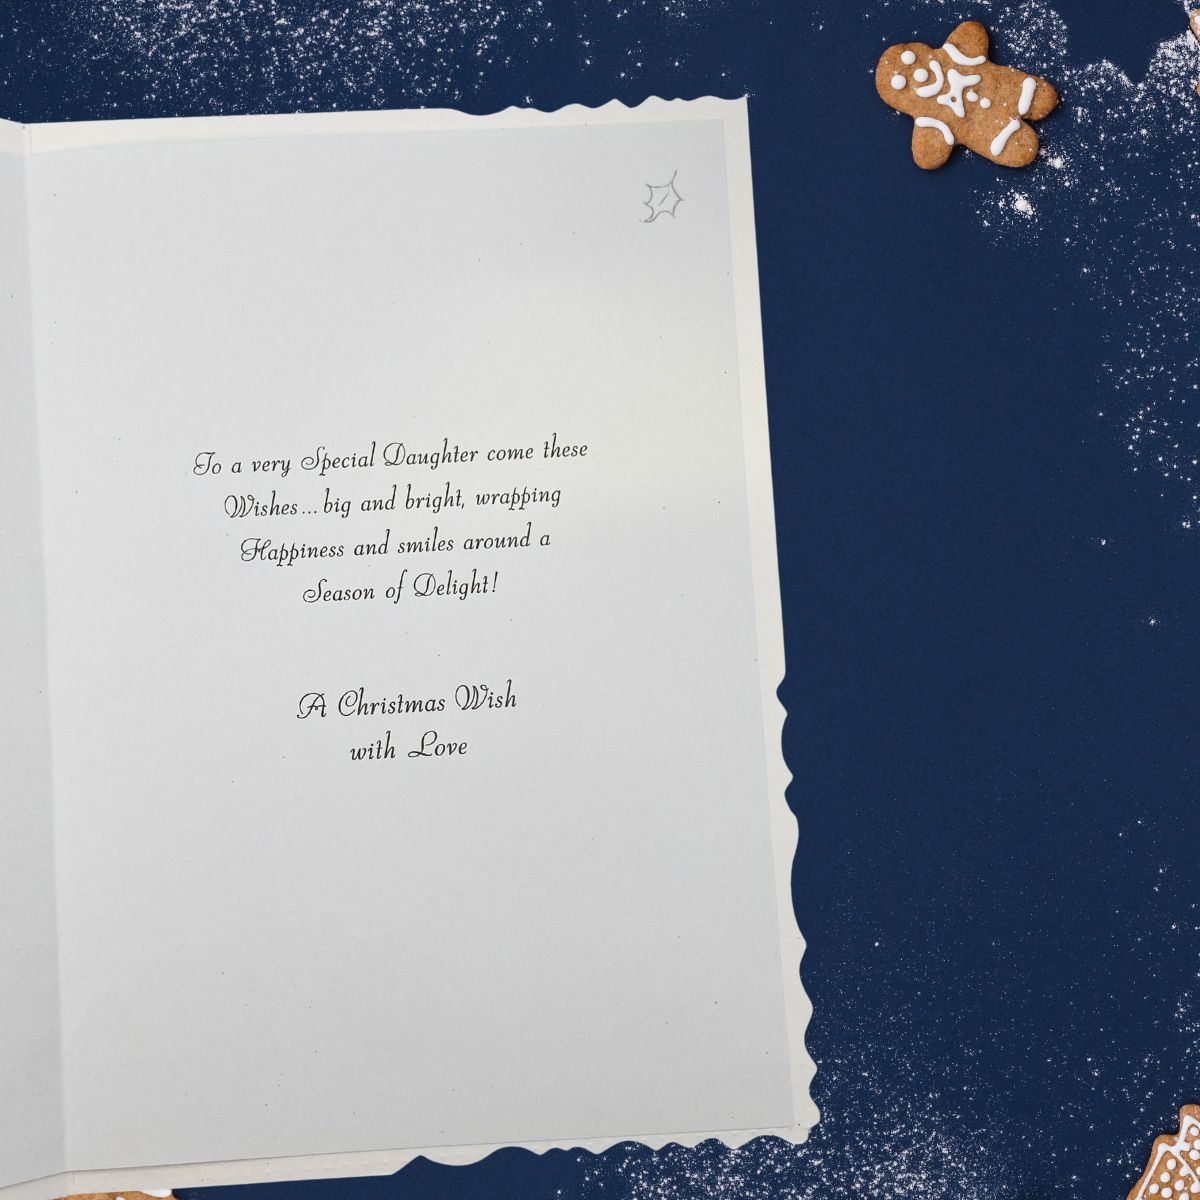 To a very Special Daughter come these
Wishes... big and bright, wrapping
Happiness and smiles around a
Season of Delight!
A Christmas Wish
with Love